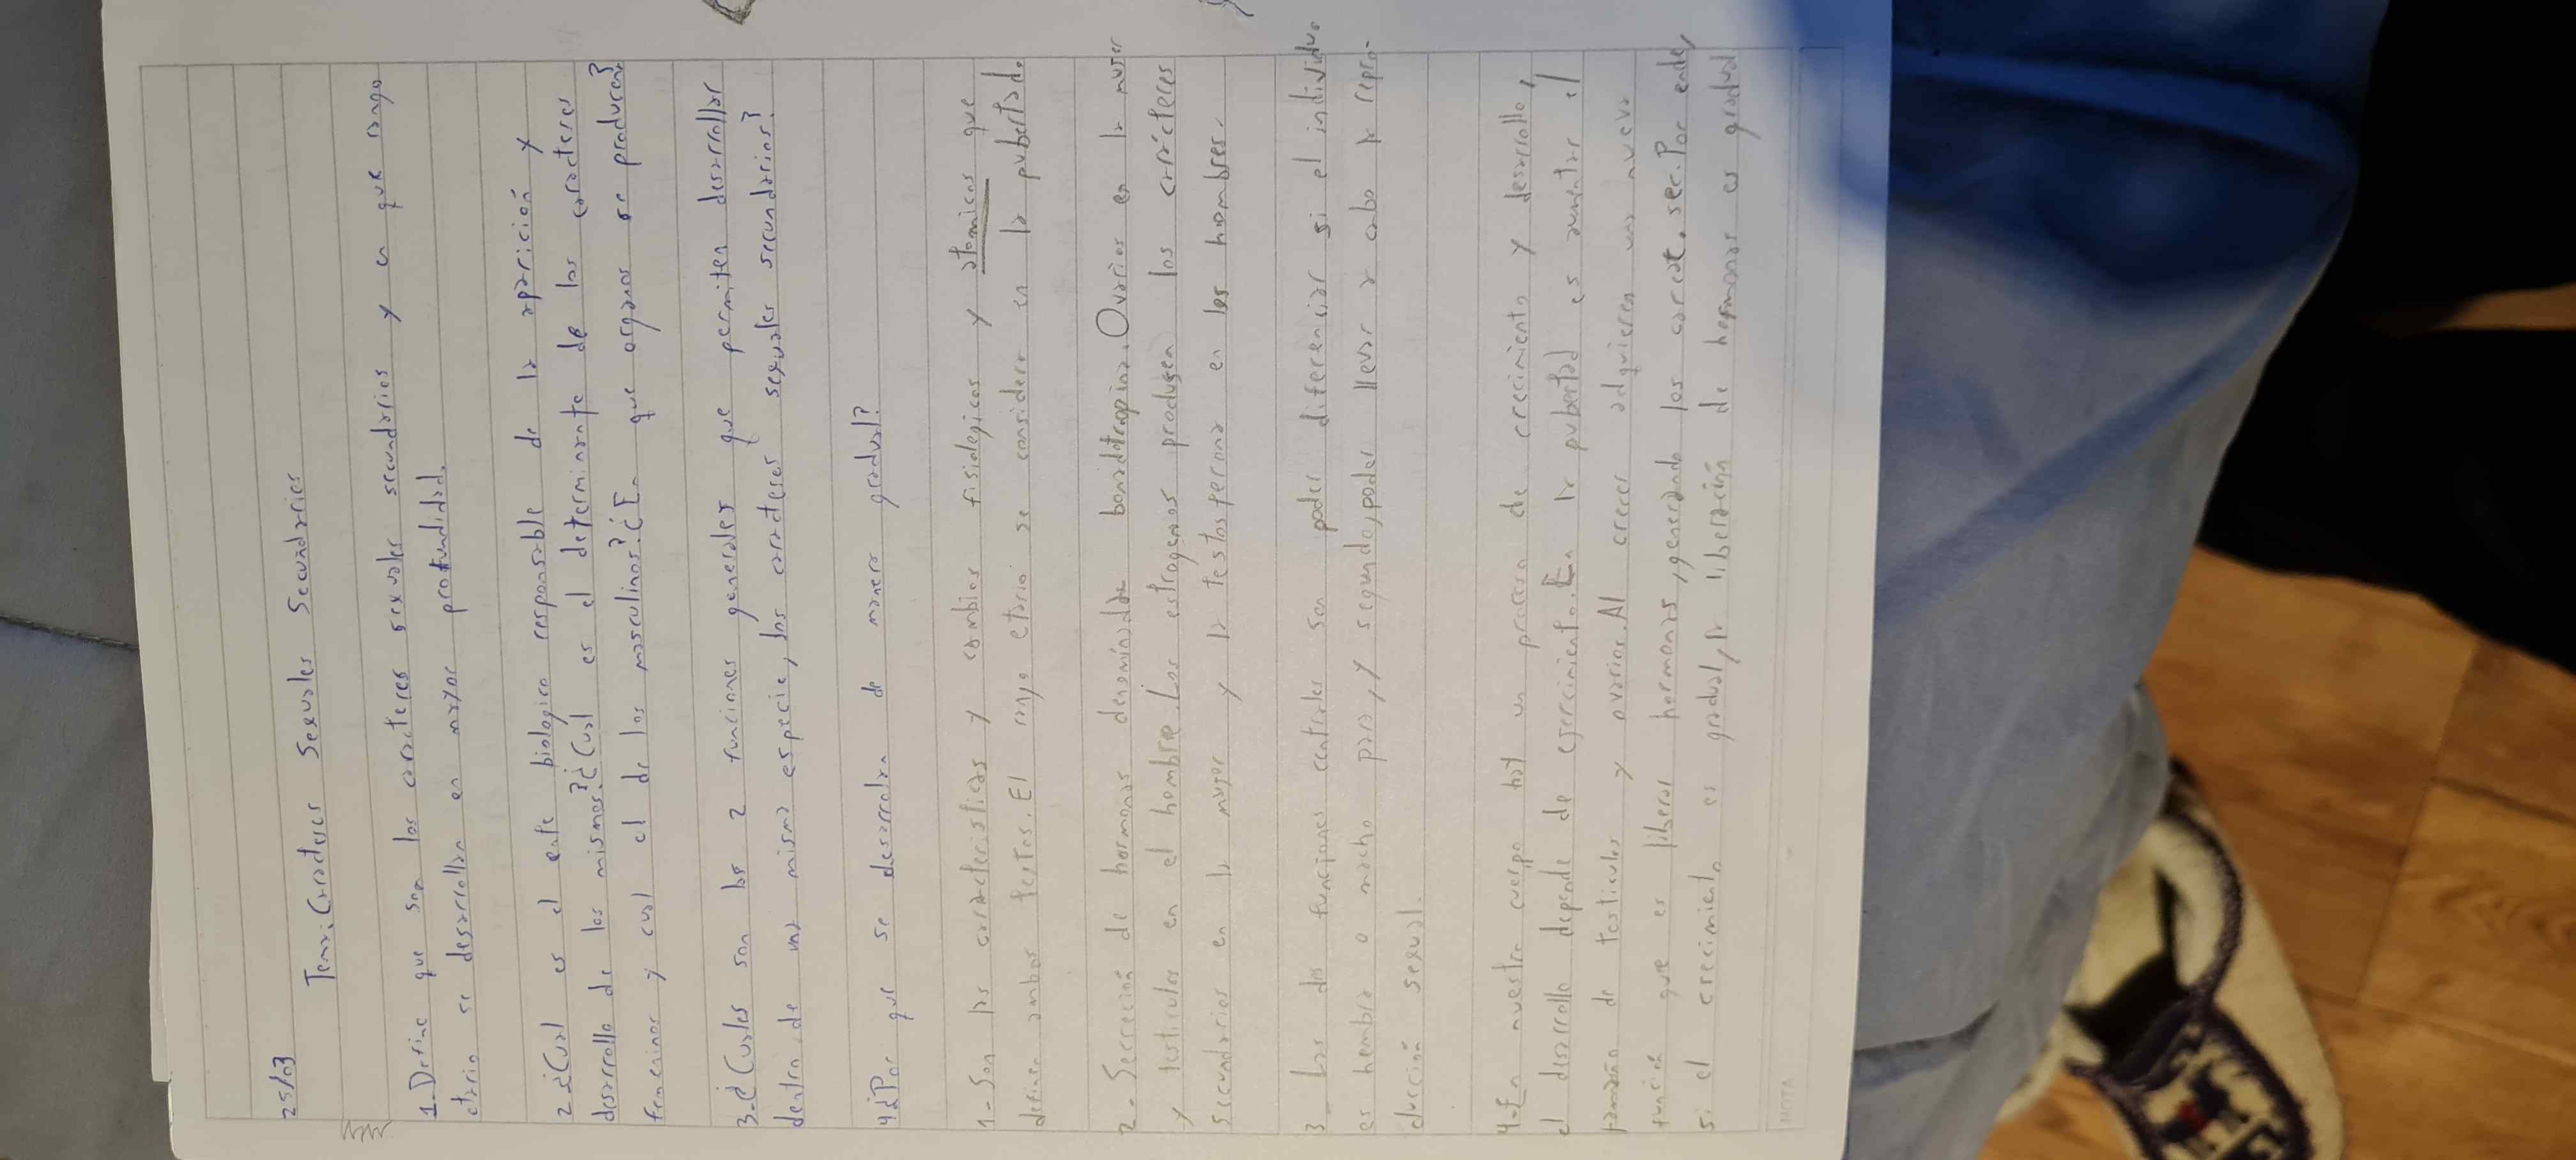 25/03
Tema: Caracteres Sexuales Secundarios
1-Define que son los caracteres sexuales secundarios y en que rango
etario se desarrollan en mayor profundidad.
2-¿Cual es el ente biologico responsable de la aparición y
desarrollo de los mismos?¿Cual es el determinante de los caracteres
femeninos y cual el de los masculinos?¿En que organos se producen?
3-¿Cuales son las 2 funciones generales que permiten desarrollar
dentro de una misma especie, los caracteres sexuales secundarios?
4¿Por que se desarrollan de manera gradual?
1-Son las caracteristicas y cambios fisiologicos y atomicos que
definen ambos sextos. El rango etario se considera en la pubertad.
2-Secreción de hormonas denominada Ovarios en la mujer
y testiculos en el hombre. Los estrogenos producen los carácteres
secundarios en la mujer y la testosterona en los hombres.
3- Las dos funciones centrales son poder diferenciar si el individuo
es hembra o macho para, y segundo, poder llevar a cabo la repro-
ducción sexual.
4-En nuestro cuerpo hay un proceso de crecimiento y desarrollo,
el desarrollo depende de crecimiento. En la pubertad es aumentar el
tamaño de testiculos y ovarios. Al crecer adquieren una nueva
función que es liberar hormonas, generando los caract. sec. Por ende,
si el crecimiento es gradual, la liberación de hormonas es gradual
NOTA